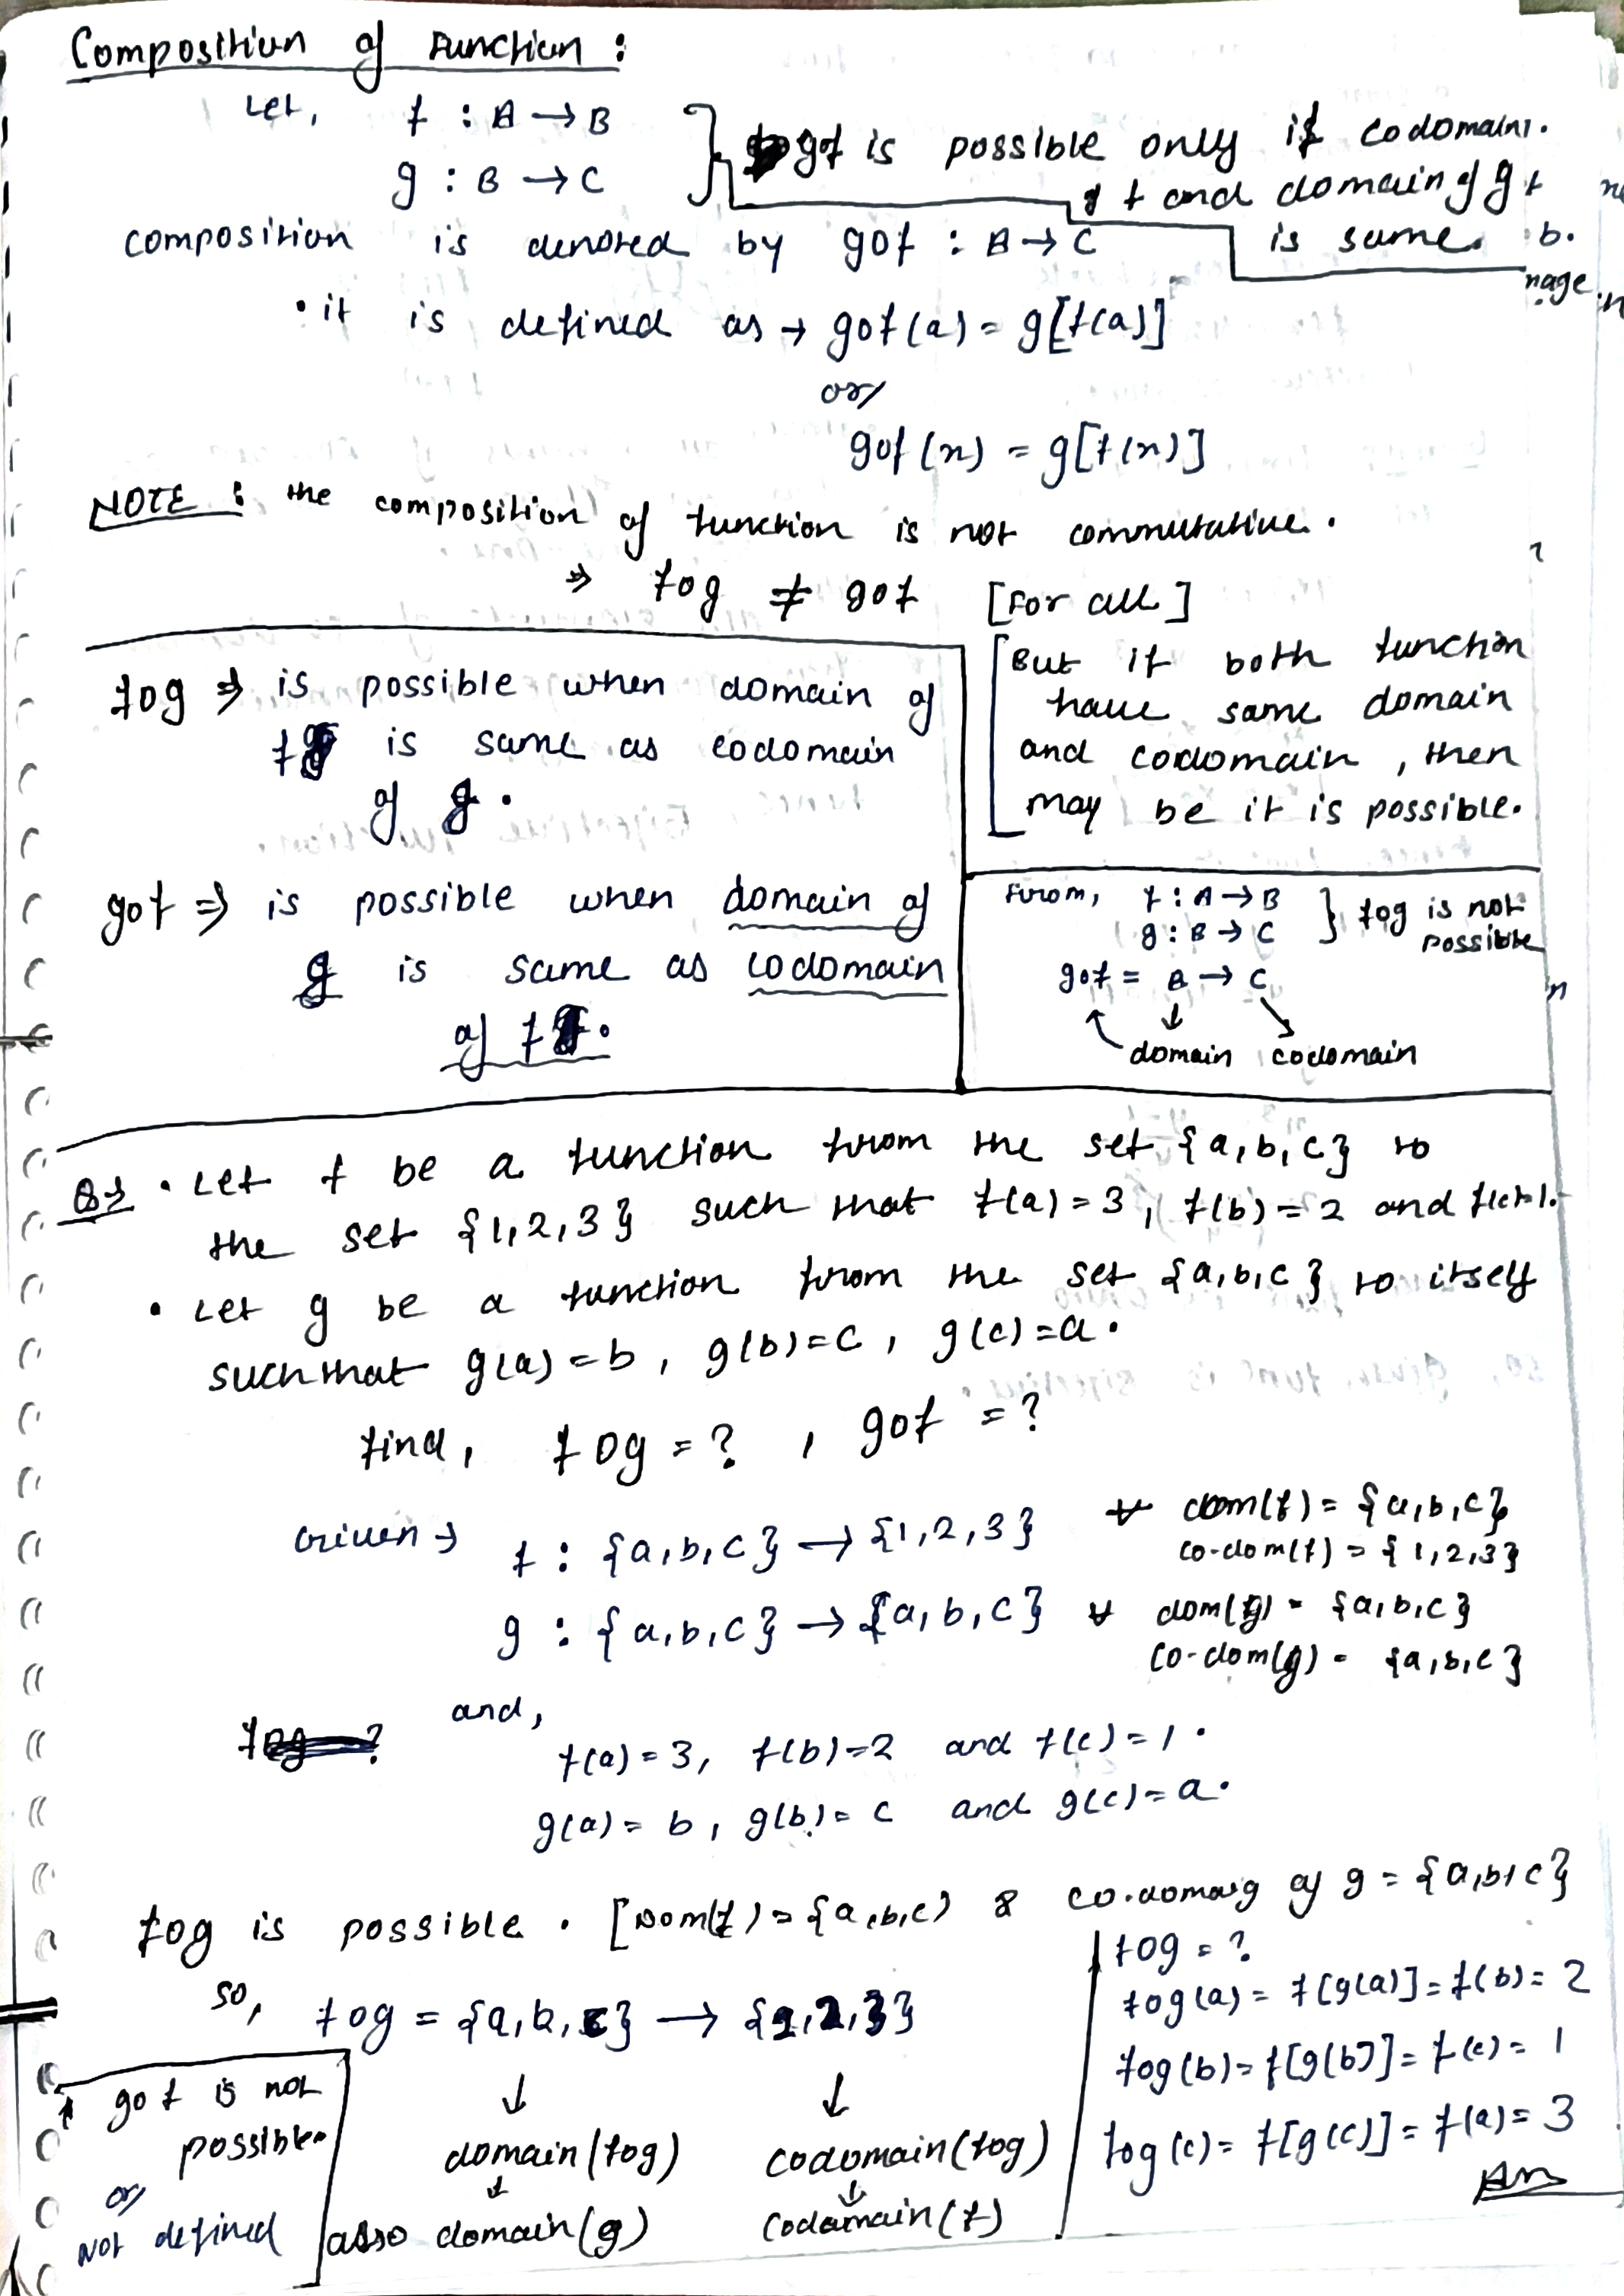 Composition of Function :
Let, f : A → B
g : B → C
gof is possible only if codomain.
f and domain of g
is same.
composition is denoted by gof : A → C
• it is defined as → gof(a) = g[f(a)]
or
gof(n) = g[f(n)]
NOTE : the composition of function is not commutative.
⇒ fog ≠ gof [For all]
[But if both function
have same domain
and codomain, then
may be it is possible.
fog ⇒ is possible when domain of
f is same as codomain
of g.
gof ⇒ is possible when domain of
g is same as codomain
of f.
From, f : A → B
g : B → C
} fog is not
possible
gof = A → C
domain codomain
Q→ • Let f be a function from the set {a,b,c} to
the set {1,2,3} such that f(a)=3, f(b)=2 and f(c)=1.
• Let g be a function from the set {a,b,c} to itself
such that g(a)=b, g(b)=c, g(c)=a.
find, fog = ? , gof = ?
Given → f : {a,b,c} → {1,2,3}
dom(f) = {a,b,c}
co-dom(f) = {1,2,3}
g : {a,b,c} → {a,b,c}
dom(g) = {a,b,c}
co-dom(g) = {a,b,c}
and,
f(a)=3, f(b)=2 and f(c)=1.
g(a)=b, g(b)=c and g(c)=a.
fog is possible. [Dom(f)={a,b,c) & co.domaig of g = {a,b,c}
so, fog = {a,b,c} → {1,2,3}
↓ ↓
domain(fog) codomain(fog)
↓ ↓
also domain(g) codomain(f)
gof is not
possible
or
Not defined
fog = ?
fog(a) = f[g(a)] = f(b) = 2
fog(b) = f[g(b)] = f(c) = 1
fog(c) = f[g(c)] = f(a) = 3
Ans